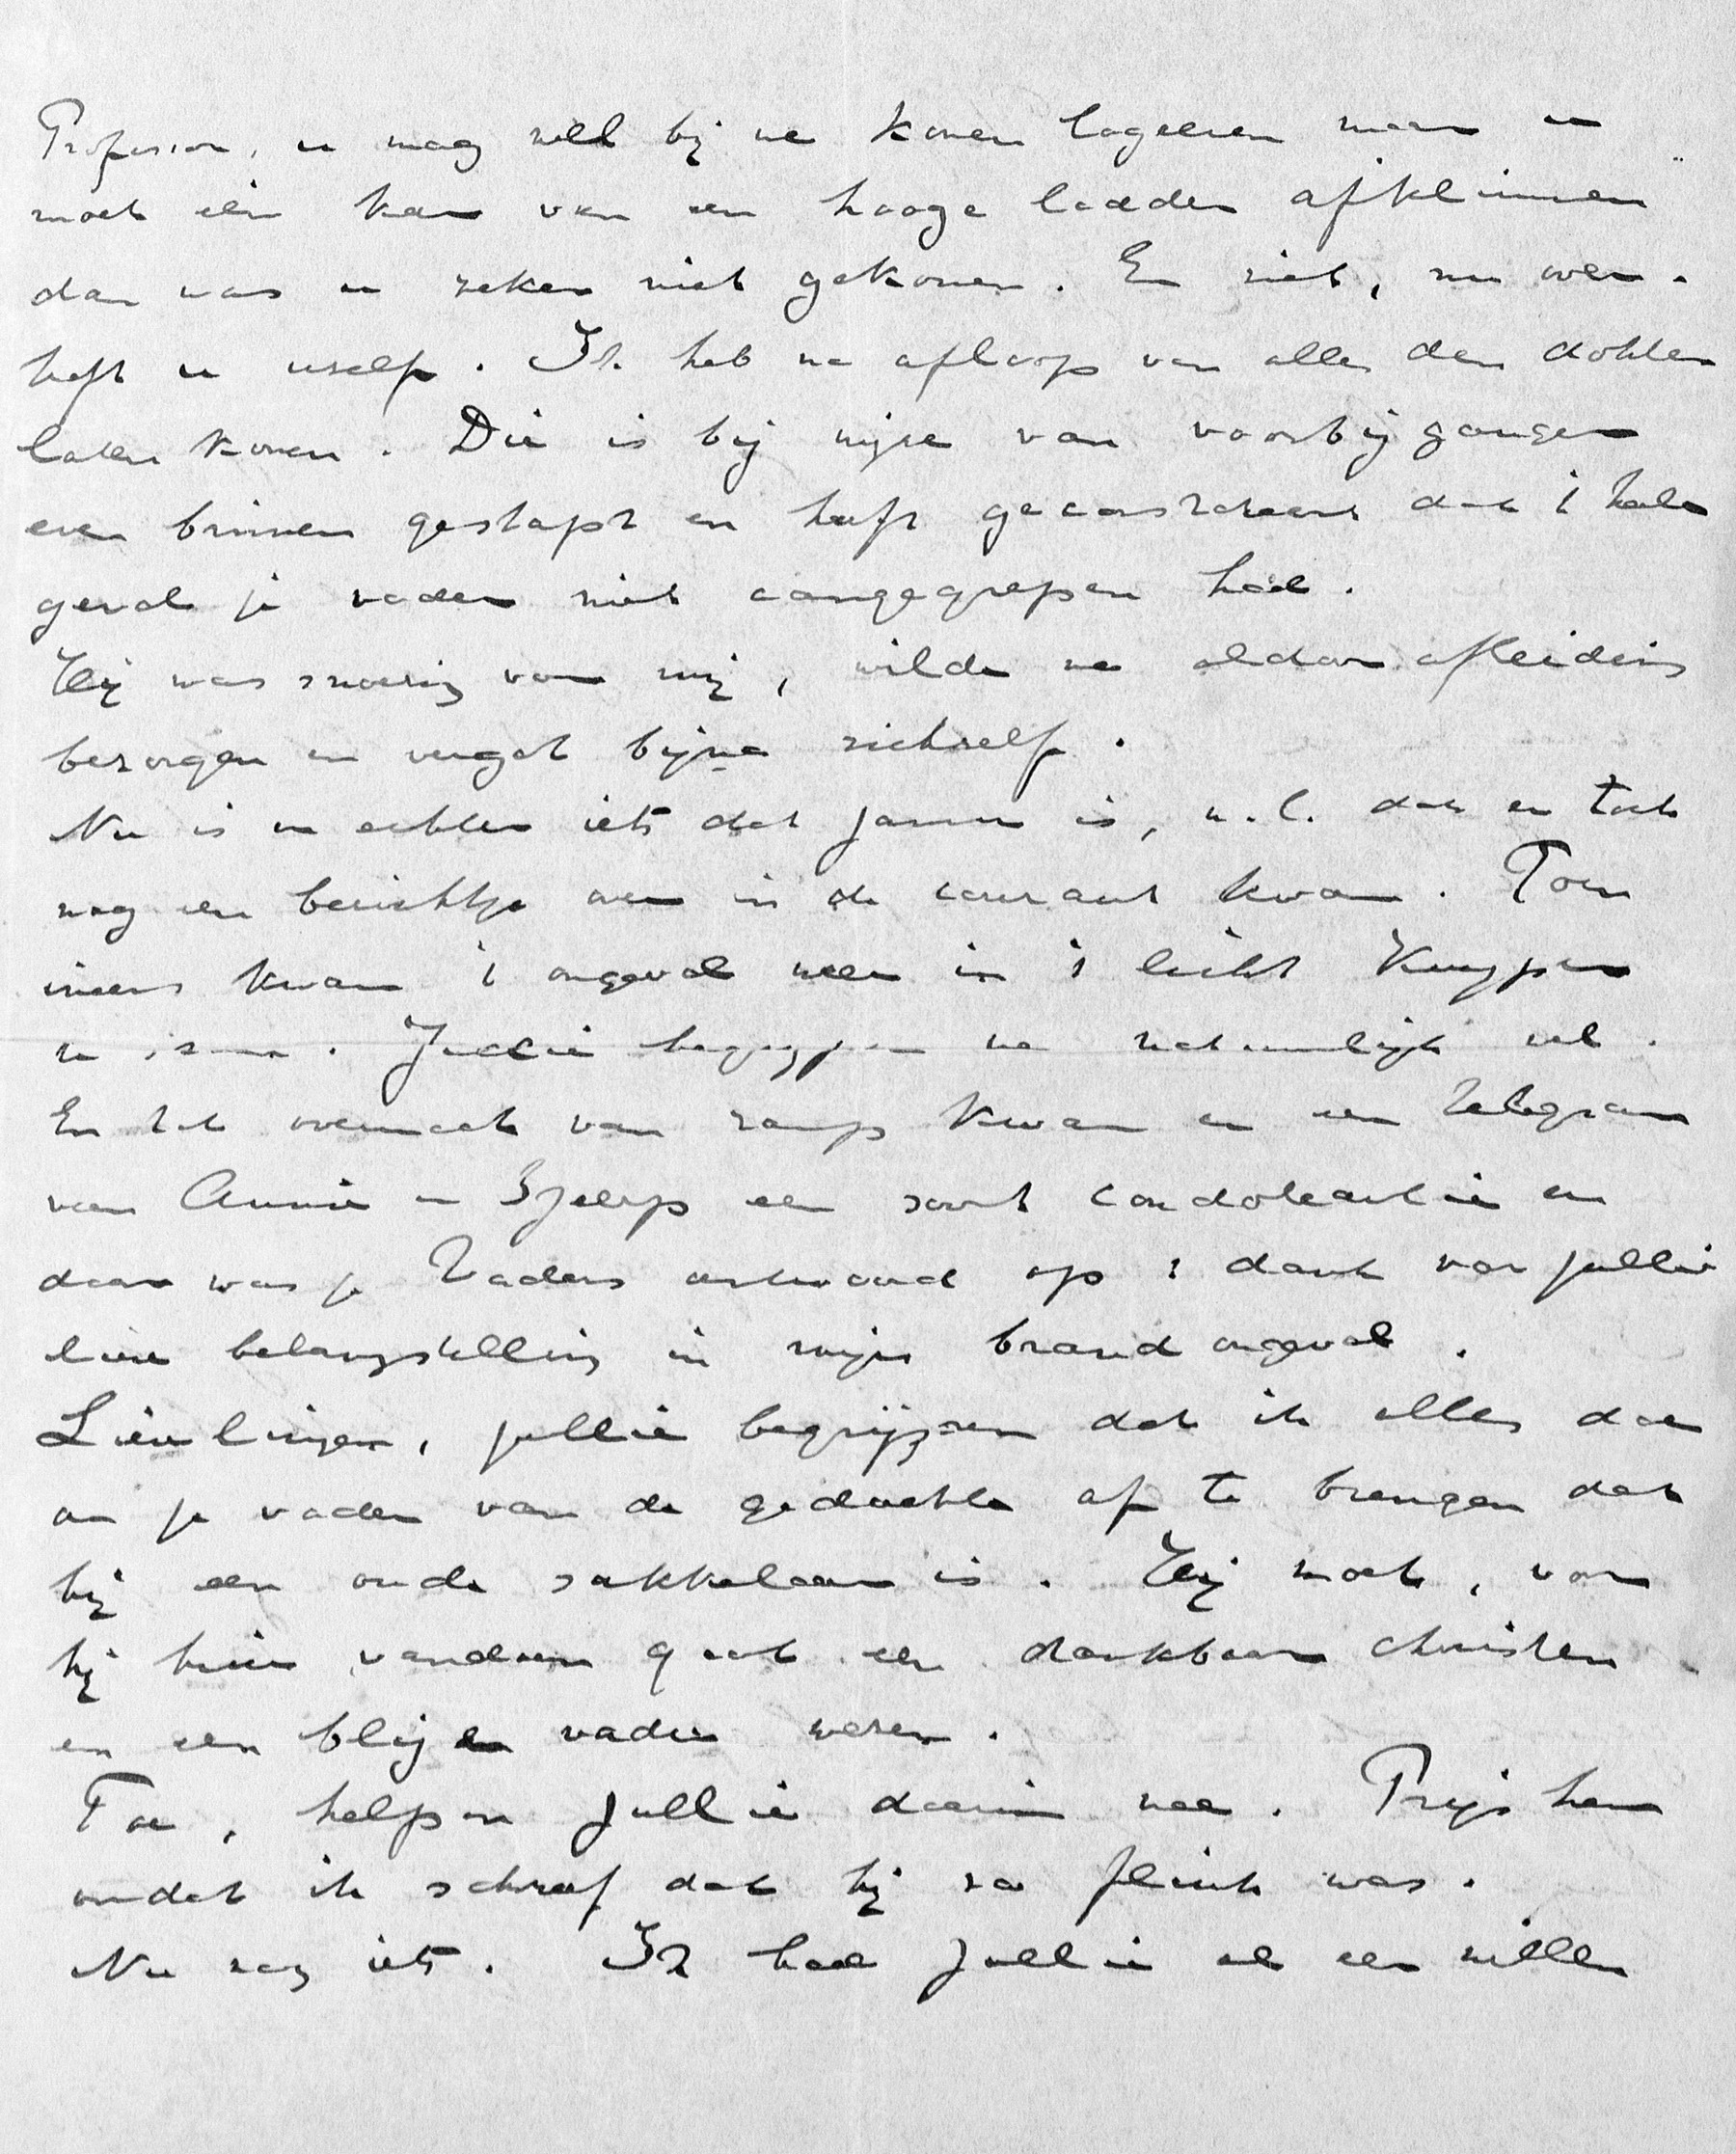 Professor, u mag wel bij me komen logeeren maar u
moet één keer van een hooge ladder afklimmen
dan was u zeker niet gekomen. En ziet, nu over-
treft u uzelf. Ik heb na afloop van alles den dokter
laten komen. Die is bij wijze van voorbijganger
even binnen gestapt en heeft geconstateerd dat 't heele
geval je vader niet aangegrepen had.
Hij was snoezig voor mij, wilde me aldoor afleiding
bezorgen en vergat bijna zichzelf.
Nu is er echter iets dat jammer is, n.l. dat er toch
nog een berichtje over in de courant kwam. Toen
ineens kwam 't ongeval weer in 't licht Kuyper
Jullie begrijpen me natuurlijk wel.
En tot overmaat van ramp kwam er een telegram
van Annie en Sjeerp een soort condoleantie en
daar was je Vaders antwoord op: dank voor jullie
lieve belangstelling in mijn brand ongeval.
Lievelingen, jullie begrijpen dat ik alles doe
om je vader van de gedachte af te brengen dat
hij een oude sukkelaar is. Hij moet, voor
hij hier vandaan gaat een dankbaar christen
en een blijde vader wezen.
Toe, helpen jullie daarin mee. Prijs hem
omdat ik schreef dat hij zoo flink was.
Nu nog iets. Ik had jullie al een willen